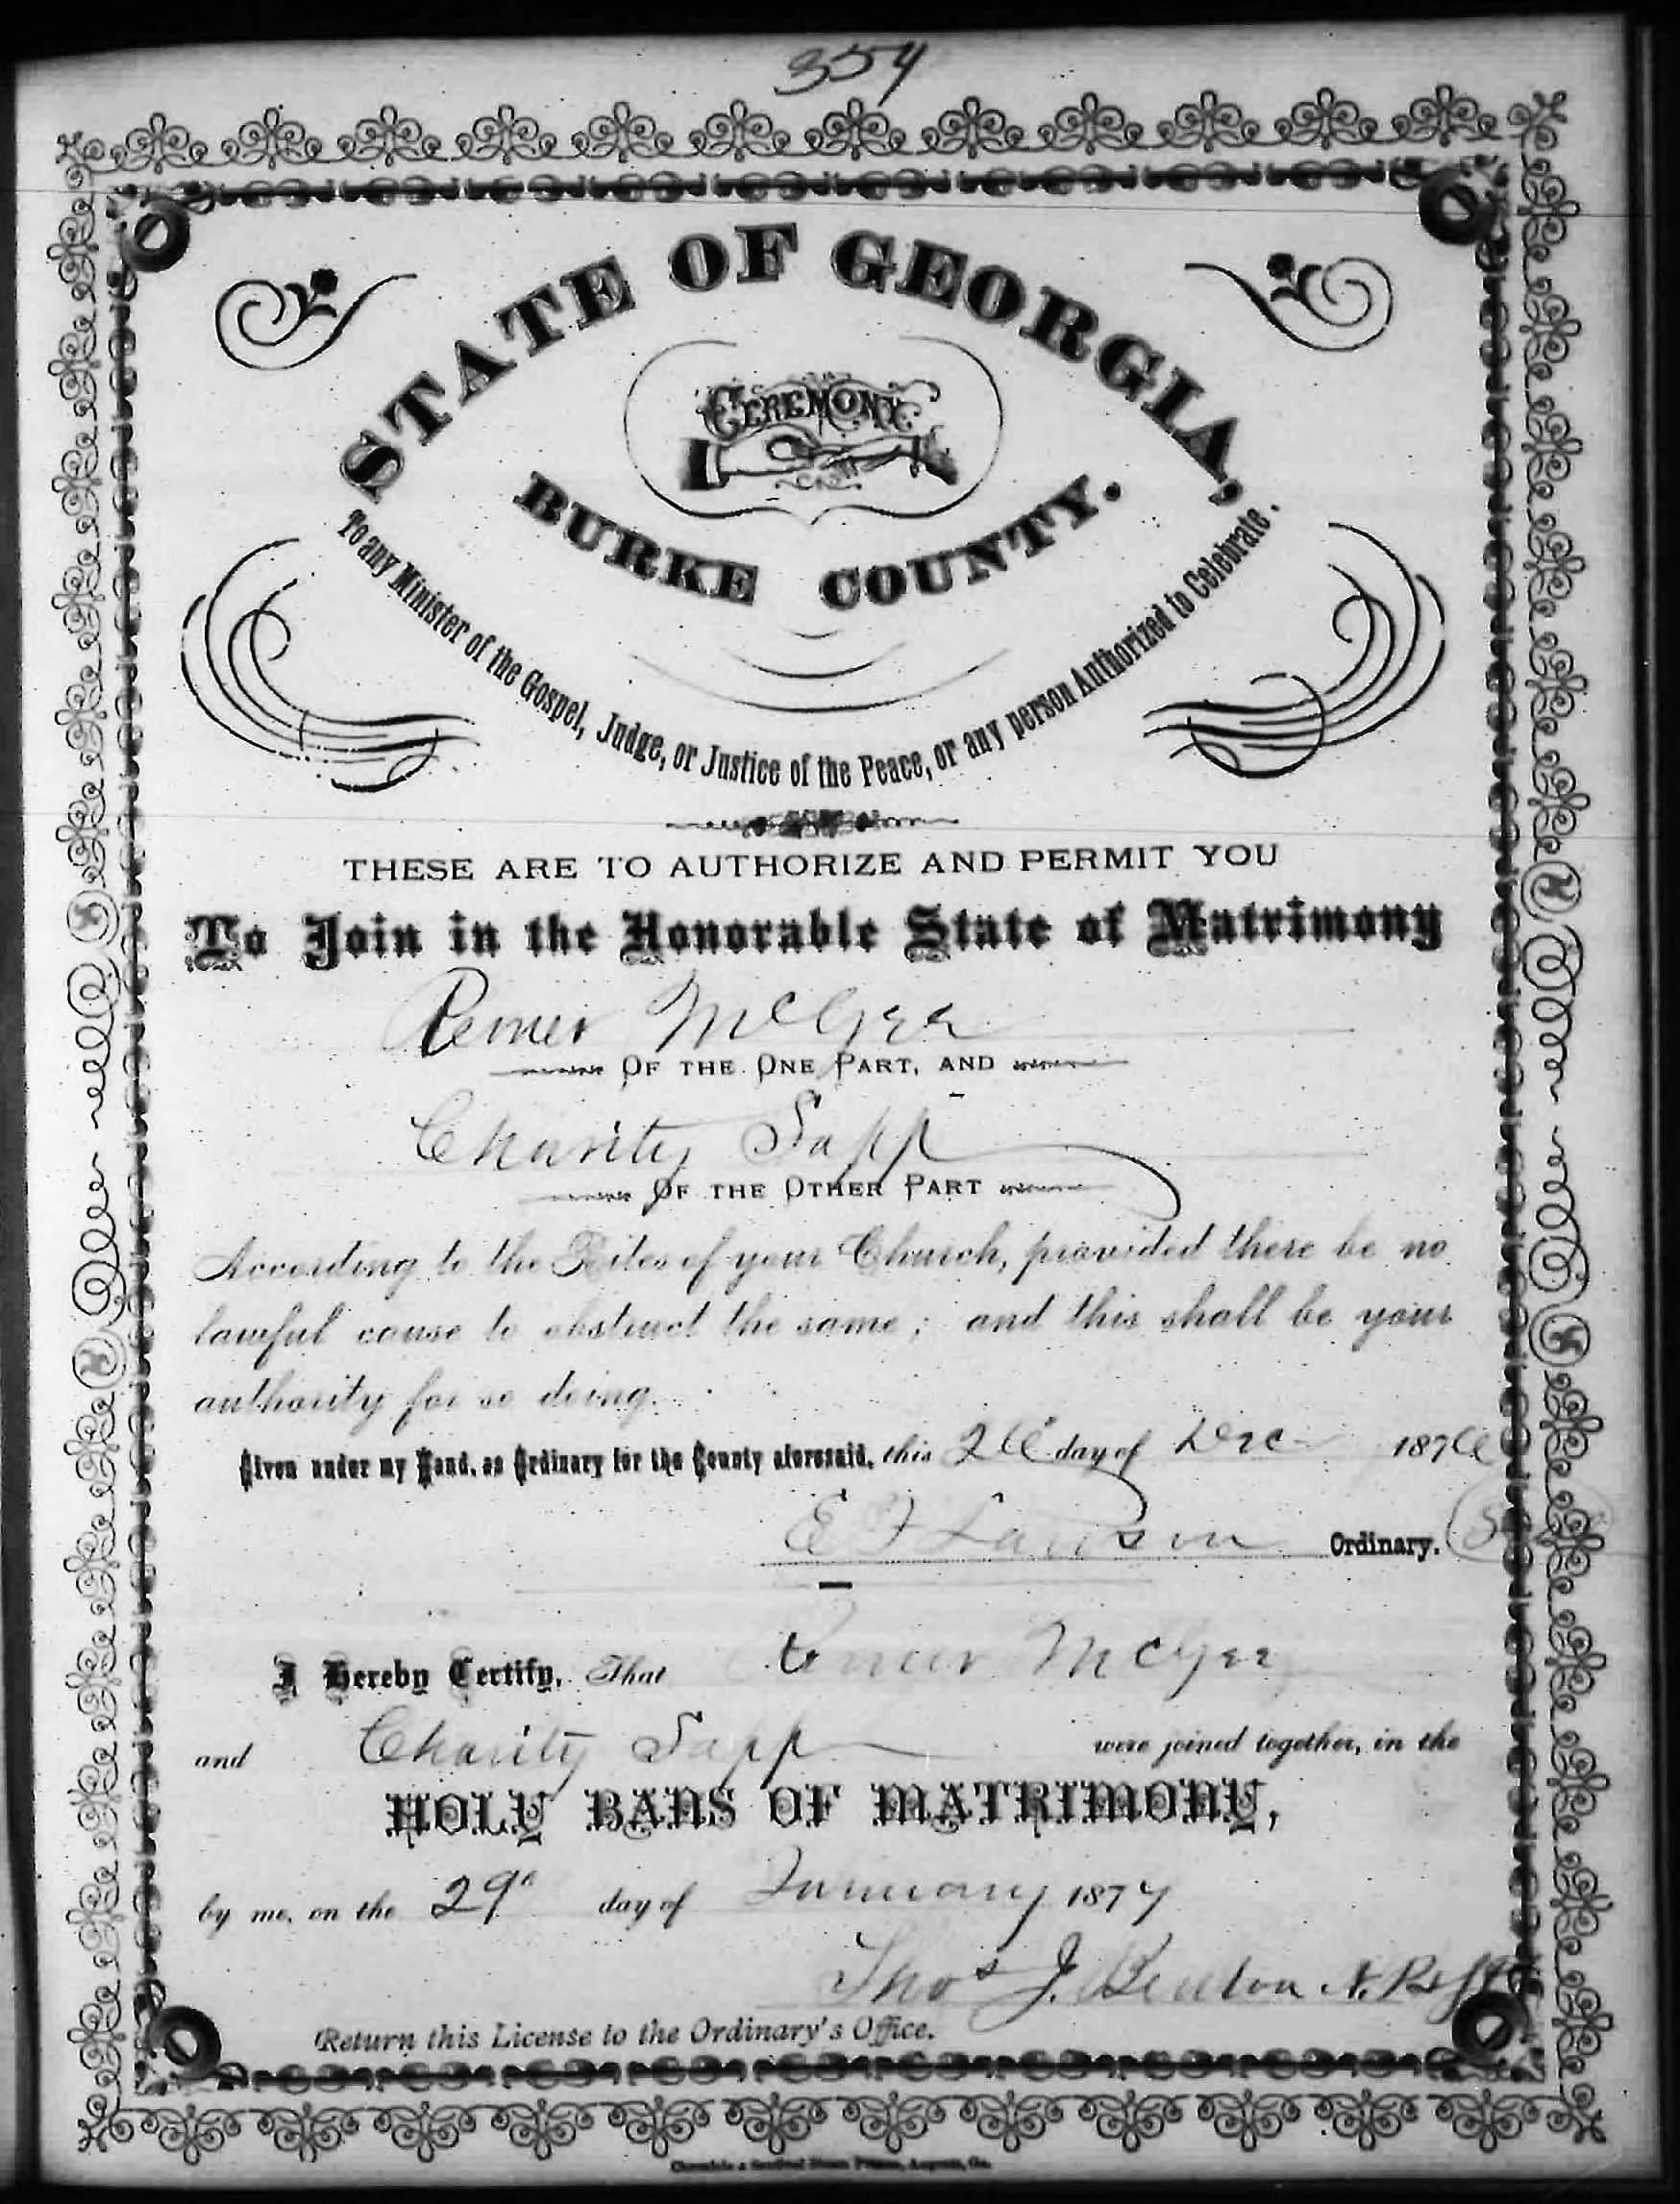 354
STATE OF GEORGIA,
CEREMONY
BURKE COUNTY.
To any Minister of the Gospel, Judge, or Justice of the Peace, or any person Authorized to Celebrate.
THESE ARE TO AUTHORIZE AND PERMIT YOU
To Join in the Honorable State of Matrimony
Remer McGee
OF THE ONE PART, AND
Charity Sapp
OF THE OTHER PART
According to the Rites of your Church, provided there be no
lawful cause to obstruct the same; and this shall be your
authority for so doing.
Given under my Hand, as Ordinary for the County aforesaid, this 26 day of Dec 1876
E F Lawson Ordinary.
I Hereby Certify, That Remer McGee
and Charity Sapp were joined together, in the
HOLY BANS OF MATRIMONY,
by me, on the 29th day of January 1877
Thos J. Benton N.P.
Return this License to the Ordinary's Office.
Chronicle & Sentinel Steam Presses, Augusta, Ga.